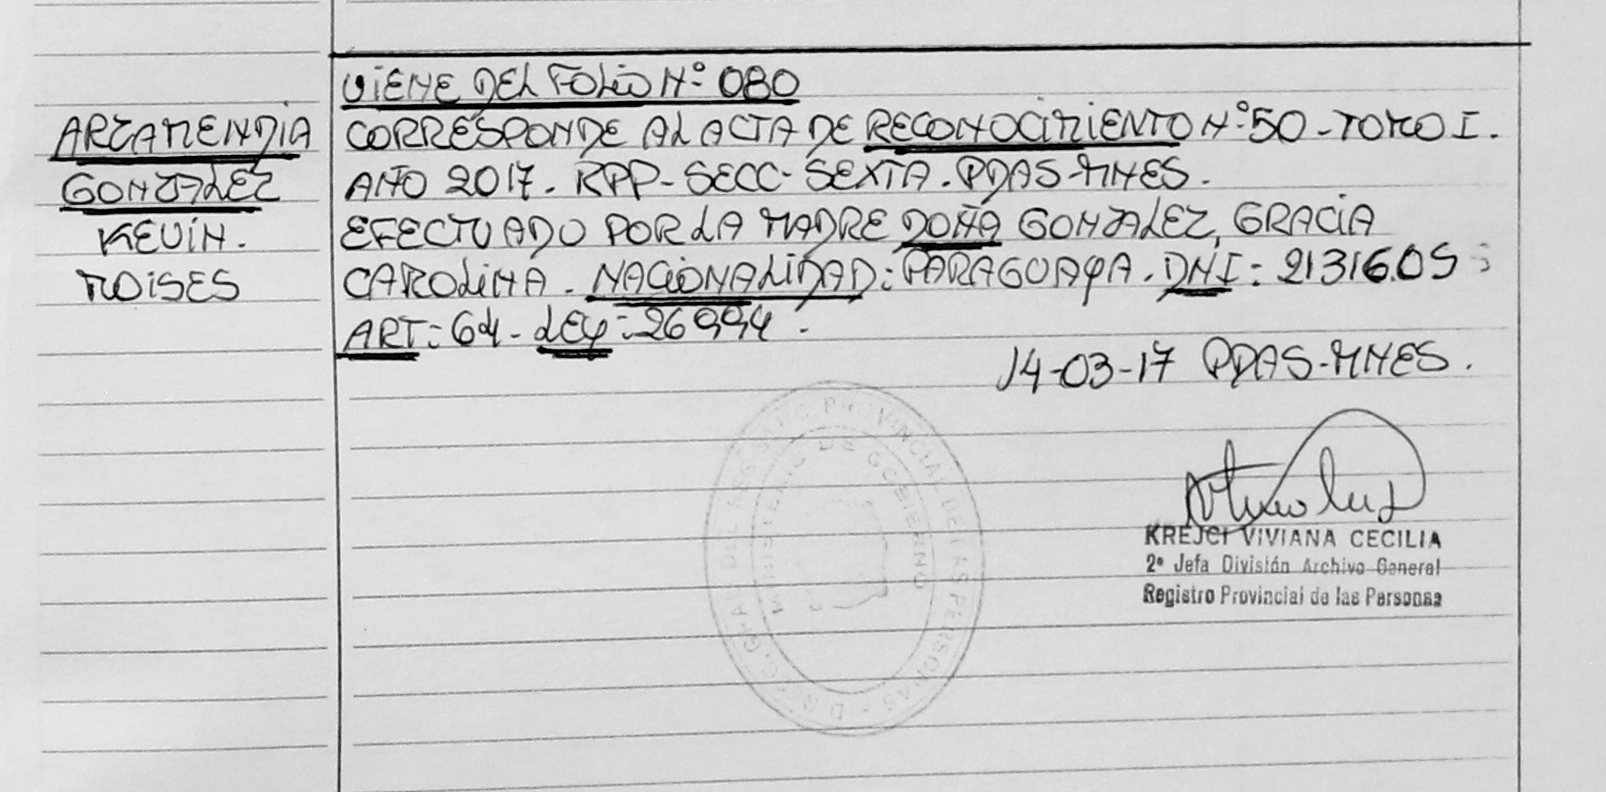 VIENE DEL FOLIO N° 080
ARZAMENDIA
GONZALEZ
KEVIN.
MOISES
CORRESPONDE AL ACTA DE RECONOCIMIENTO N° 50 - TOMO I.
AÑO 2017. RPP- SECC- SEXTA. PDAS-MNES.
EFECTUADO POR LA MADRE DOÑA GONZALEZ, GRACIA
CAROLINA. NACIONALIDAD: PARAGUAYA. DNI:
ART: 64 - LEY: 26994.
14-03-17 PDAS-MNES.
KREJCI VIVIANA CECILIA
2ª Jefa División Archivo General
Registro Provincial de las Personas
PROVINCIAL DE LAS PERSONAS
MINISTERIO DE GOBIERNO